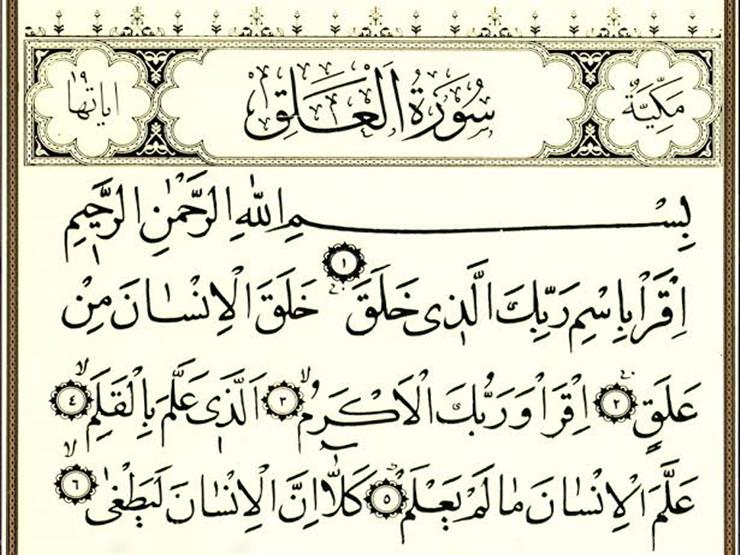 مَكِّيَّةٌ سُورَةُ الْعَلَقِ اٰيَاتُهَا ١٩
بِسْمِ اللّٰهِ الرَّحْمٰنِ الرَّحٖيمِ
اِقْرَاْ بِاسْمِ رَبِّكَ الَّذٖى خَلَقَ ١ خَلَقَ الْاِنْسَانَ مِنْ
عَلَقٍ ٢ اِقْرَاْ وَرَبُّكَ الْاَكْرَمُ ٣ اَلَّذٖى عَلَّمَ بِالْقَلَمِ ٤
عَلَّمَ الْاِنْسَانَ مَا لَمْ يَعْلَمْ ٥ كَلَّٓا اِنَّ الْاِنْسَانَ لَيَطْغٰى ٦